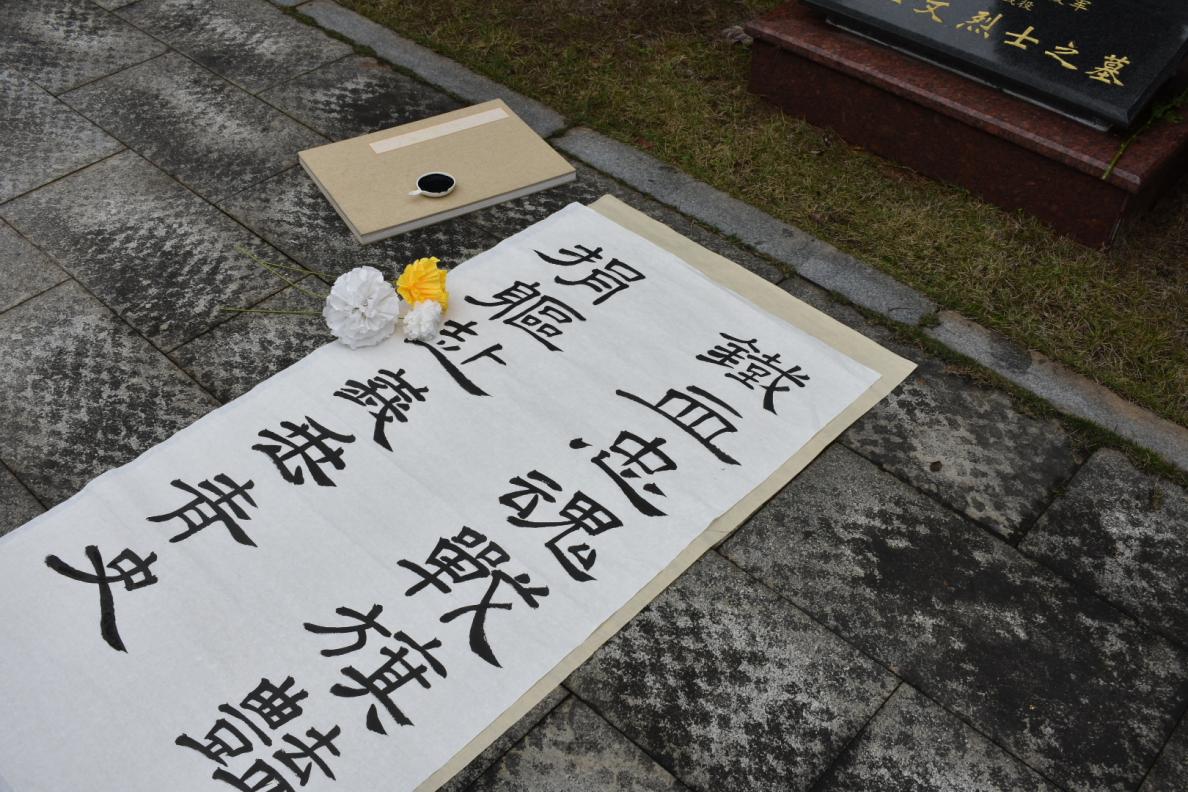 鐵血忠魂戰旗豔
捐軀赴義垂青史
军
役
文烈士之墓